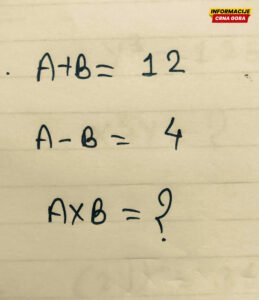 INFORMACIJE
CRNA GORA
A+B= 12
A-B = 4
AXB = ?